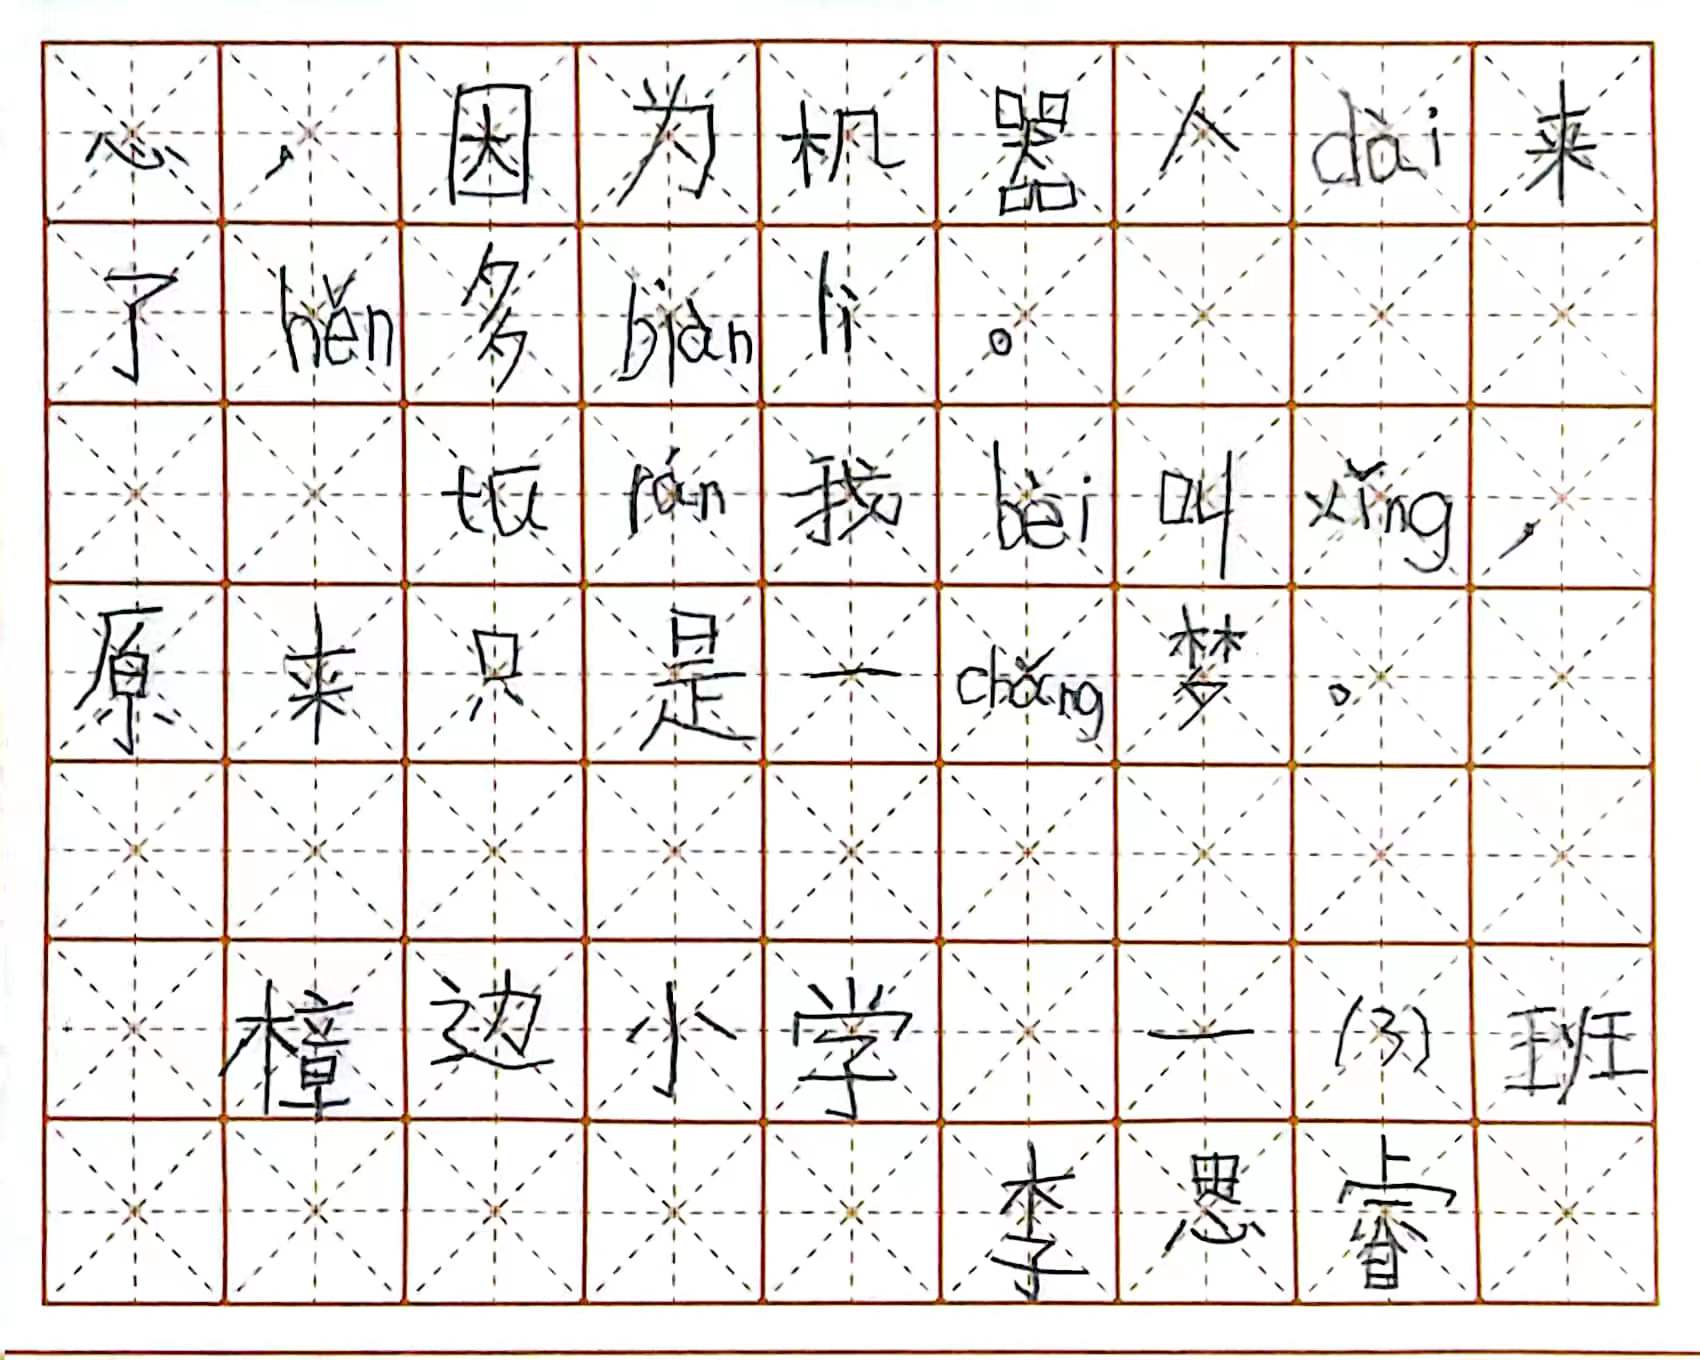 心，因为机器人dài来
了hěn多biàn lì。
tū rán我bèi叫xǐng，
原来只是一chǎng梦。
樟边小学 一(3)班
李思睿